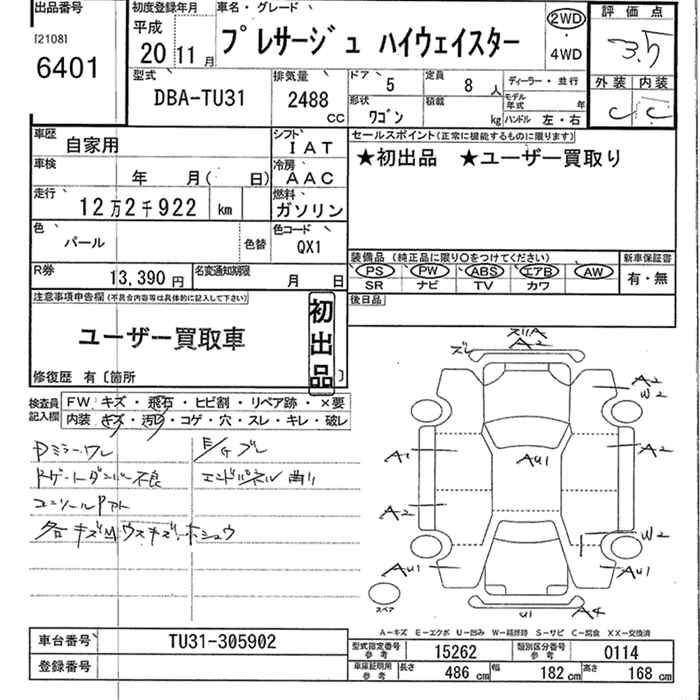 出品番号
[2108]
6401
初度登録年月
平成
20 11月
車名・グレード
プレサージュ ハイウェイスター
2WD
・
4WD
評価点
3.5
外装 内装
C C
型式
DBA-TU31
排気量
2488 cc
ドア 5
定員 8人
形状 ワゴン
積載 kg
ディーラー・並行
モデル年式 年
ハンドル 左・右
車歴 自家用
シフト IAT
車検 年 月( 日)
冷房 AAC
走行 12万2千922 km
燃料 ガソリン
色 パール
色替
色コード QX1
R券 13,390円
名変通知期限 月 日
セールスポイント(正常に機能するものに限ります)
★初出品 ★ユーザー買取り
装備品(純正品に限り○をつけてください)
PS PW ABS エアB AW
SR ナビ TV カワ
新車保証書
有・無
後日品
注意事項申告欄(不具合内容等は具体的に記入して下さい)
ユーザー買取車
初出品
修復歴 有〔箇所 〕
検査員記入欄
FW キズ・飛石・ヒビ割・リペア跡・×要
内装 キズ・汚レ・コゲ・穴・スレ・キレ・破レ
Dミラーワレ
E/Gブレ
Rゲートダンパー不良
エンドパネル曲り
各キズM ウスキズ・ホシュウ
ズレ
A2
A2
W2
A1
AU1
A2
A2
W2
AU1
AU1
U1
A4
スペア
A-キズ E-エクボ U-凹み W-補修跡 S-サビ C-腐食 XX-交換済
車台番号 TU31-305902
登録番号
型式指定番号 参考 15262
類別区分番号 参考 0114
車庫証明用 参考 長さ 486cm 幅 182cm 高さ 168cm